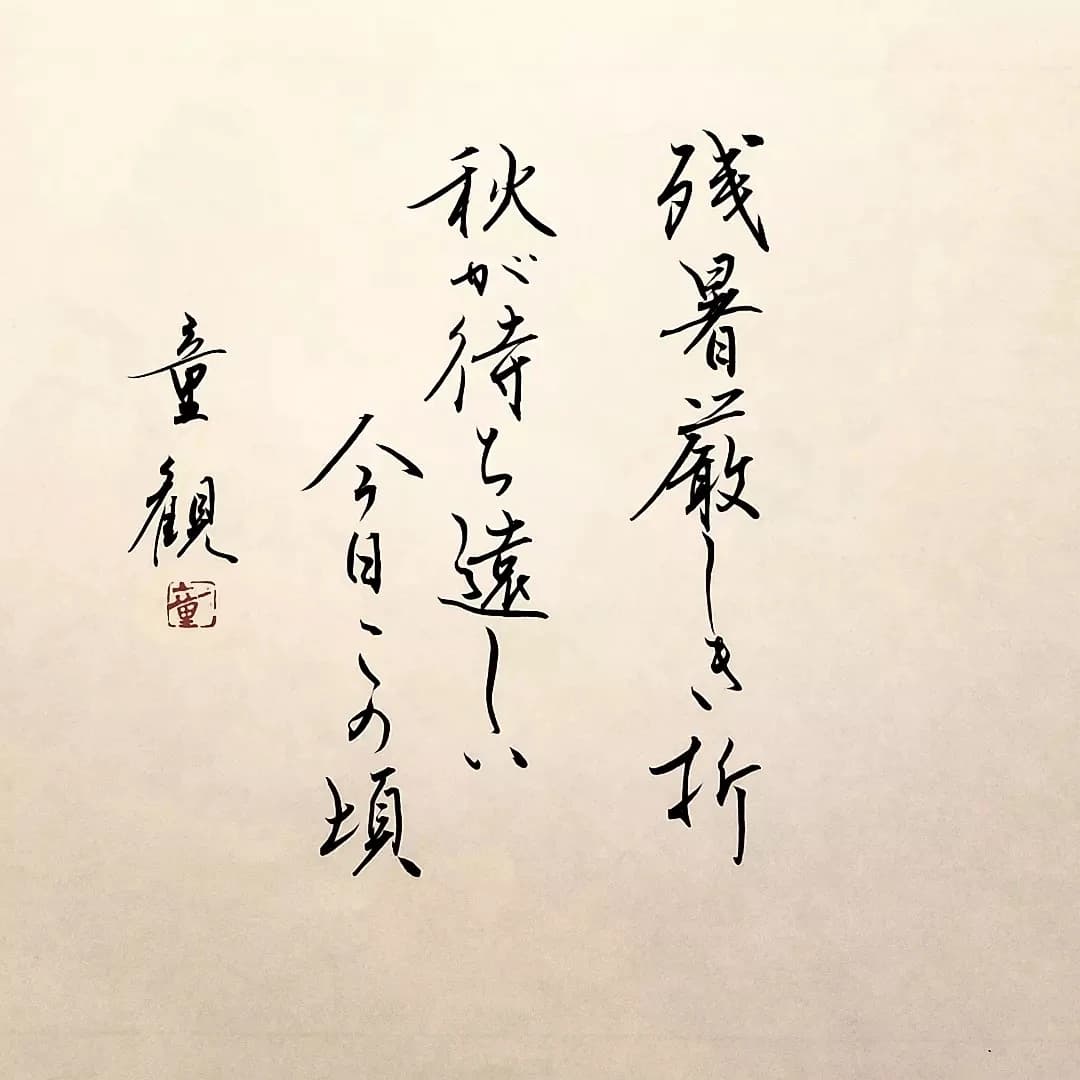 残暑厳しき折
秋が待ち遠しい
今日この頃
童観
童